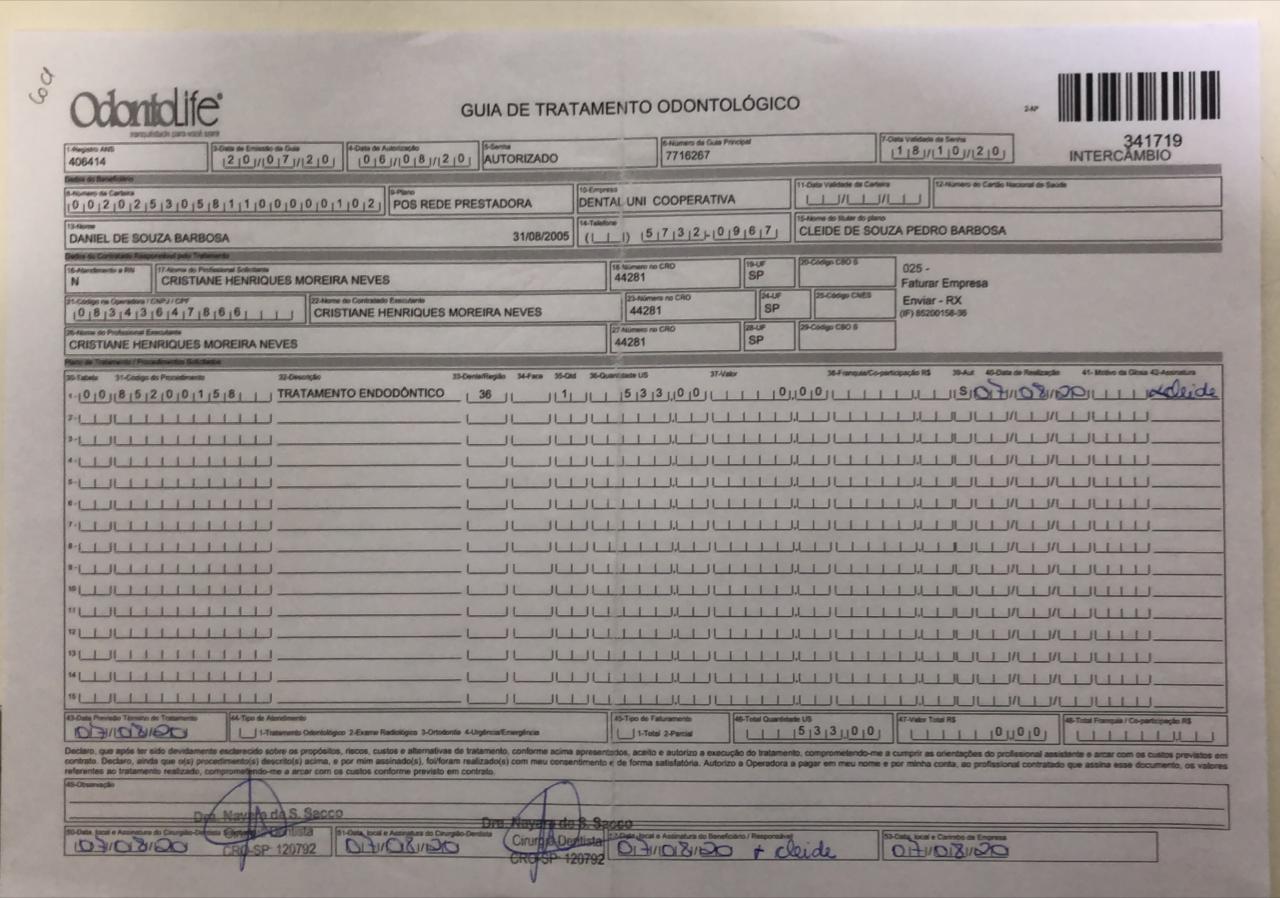 OdontoLife
tranquilidade para você sorrir
GUIA DE TRATAMENTO ODONTOLÓGICO
2-Nº
341719
INTERCÂMBIO
1-Registro ANS
406414
3-Data de Emissão da Guia
20/07/20
4-Data de Autorização
06/08/20
5-Senha
AUTORIZADO
6-Número da Guia Principal
7716267
7-Data Validade da Senha
18/10/20
Dados do Beneficiário
8-Número da Carteira
00202530581100000102
9-Plano
POS REDE PRESTADORA
10-Empresa
DENTAL UNI COOPERATIVA
11-Data Validade da Carteira
12-Número do Cartão Nacional de Saúde
13-Nome
DANIEL DE SOUZA BARBOSA 31/08/2005
14-Telefone
( ) 5732-0967
15-Nome do titular do plano
CLEIDE DE SOUZA PEDRO BARBOSA
Dados do Contratado Responsável pelo Tratamento
16-Atendimento a RN
N
17-Nome do Profissional Solicitante
CRISTIANE HENRIQUES MOREIRA NEVES
18-Número no CRO
44281
19-UF
SP
20-Código CBO S
025 -
Faturar Empresa
Enviar - RX
(IF) 85200158-36
21-Código na Operadora / CNPJ / CPF
08343647866
22-Nome do Contratado Executante
CRISTIANE HENRIQUES MOREIRA NEVES
23-Número no CRO
44281
24-UF
SP
25-Código CNES
26-Nome do Profissional Executante
CRISTIANE HENRIQUES MOREIRA NEVES
27-Número no CRO
44281
28-UF
SP
29-Código CBO S
Plano de Tratamento / Procedimentos Solicitados
30-Tabela 31-Código do Procedimento 32-Descrição 33-Dente/Região 34-Face 35-Qtd 36-Quantidade US 37-Valor 38-Franquia/Co-participação R$ 39-Aut 40-Data de Realização 41- Motivo da Glosa 42-Assinatura
1- 00 85200158 TRATAMENTO ENDODÔNTICO 36 1 533,00 0,00 S 07/08/20 Cleide
2-
3-
4-
5-
6-
7-
8-
9-
10
11
12
13
14
15
43-Data Previsão Término do Tratamento
07/08/20
44-Tipo de Atendimento
1-Tratamento Odontológico 2-Exame Radiológico 3-Ortodontia 4-Urgência/Emergência
45-Tipo de Faturamento
1-Total 2-Parcial
46-Total Quantidade US
533,00
47-Valor Total R$
0,00
48-Total Franquia / Co-participação R$
Declaro, que após ter sido devidamente esclarecido sobre os propósitos, riscos, custos e alternativas de tratamento, conforme acima apresentados, aceito e autorizo a execução do tratamento, comprometendo-me a cumprir as orientações do profissional assistente e arcar com os custos previstos em
contrato. Declaro, ainda que o(s) procedimento(s) descrito(s) acima, e por mim assinado(s), foi/foram realizado(s) com meu consentimento e de forma satisfatória. Autorizo a Operadora a pagar em meu nome e por minha conta, ao profissional contratado que assina esse documento, os valores
referentes ao tratamento realizado, comprometendo-me a arcar com os custos conforme previsto em contrato.
49-Observação
Dra. Nayara de S. Sacco
Cirurgiã Dentista
CRO-SP 120792
Dra. Nayara de S. Sacco
Cirurgiã Dentista
CRO-SP 120792
50-Data, local e Assinatura do Cirurgião-Dentista
07/08/20
51-Data, local e Assinatura do Cirurgião-Dentista
07/08/20
52-Data, local e Assinatura do Beneficiário / Responsável
07/08/20 + Cleide
53-Data, local e Carimbo da Empresa
07/08/20